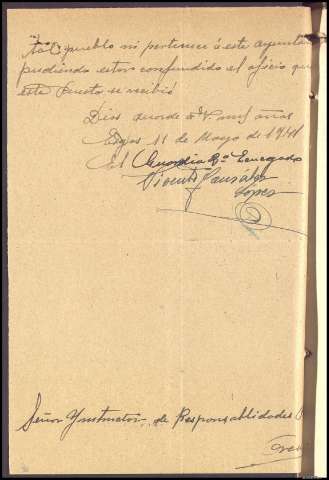 tal pueblo ni pertenece á este ayunta
pudiendo estar confundido el oficio que
este Puesto se recibió
Dios guarde á V. muchos años
11 de Mayo de 1941
El Guardia 2º Encargado
Vicente González
Lopez
Señor Ynstructor de Responsabilidades